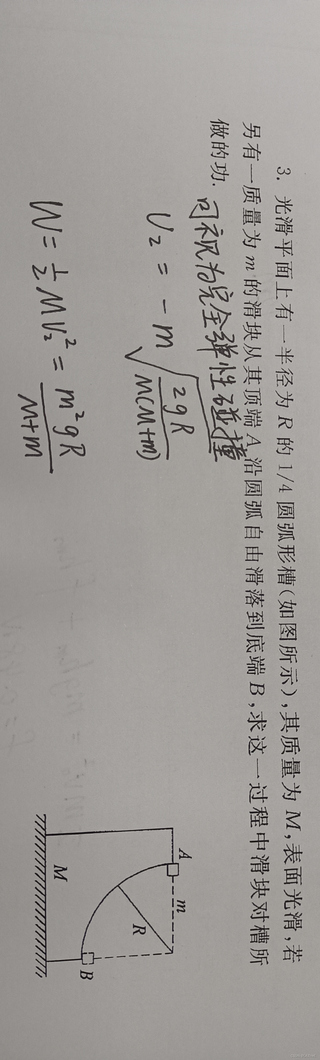 3. 光滑平面上有一半径为 R 的 1/4 圆弧形槽(如图所示),其质量为 M,表面光滑,若
另有一质量为 m 的滑块从其顶端 A 沿圆弧自由滑落到底端 B,求这一过程中滑块对槽所
做的功.
可视为完全弹性碰撞
U₂ = -m√(2gR/M(M+m))
W = 1/2 M V₂² = m²gR/M+m
A
m
R
M
B